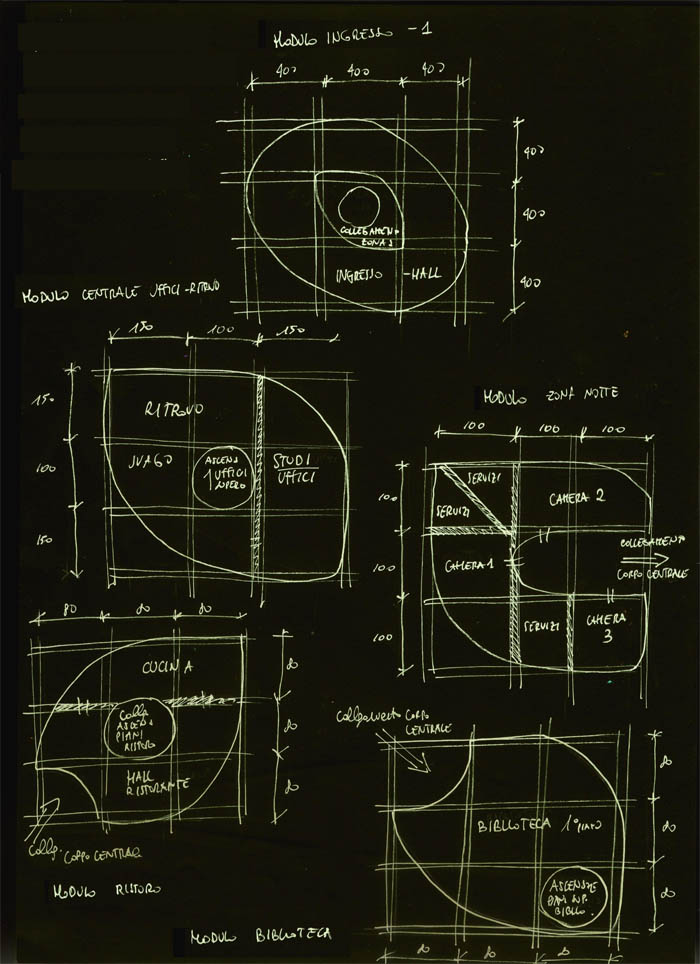 MODULO INGRESSO -1
400 400 400
400
400
400
COLLEGAMENTO
ZONA 1
INGRESSO -HALL
MODULO CENTRALE UFFICI-RITROVO
150 100 150
150
100
150
RITROVO
SVAGO
ASCENS
UFFICI
STUDI
UFFICI
MODULO ZONA NOTTE
100 100 100
100
100
100
SERVIZI
SERVIZI
CAMERA 2
CAMERA 1
COLLEGAMENTO
CORPO CENTRALE
SERVIZI
CAMERA
3
80 80 80
80
80
80
CUCINA
COLLEG
ASCENS
PIANI
RISTORO
HALL
RISTORANTE
COLLEG.
CORPO CENTRALE
MODULO RISTORO
Collegamento CORPO
CENTRALE
80
80
80
BIBLIOTECA 1° PIANO
ASCENSORE
BIBLIO.
80 80 80
MODULO BIBLIOTECA